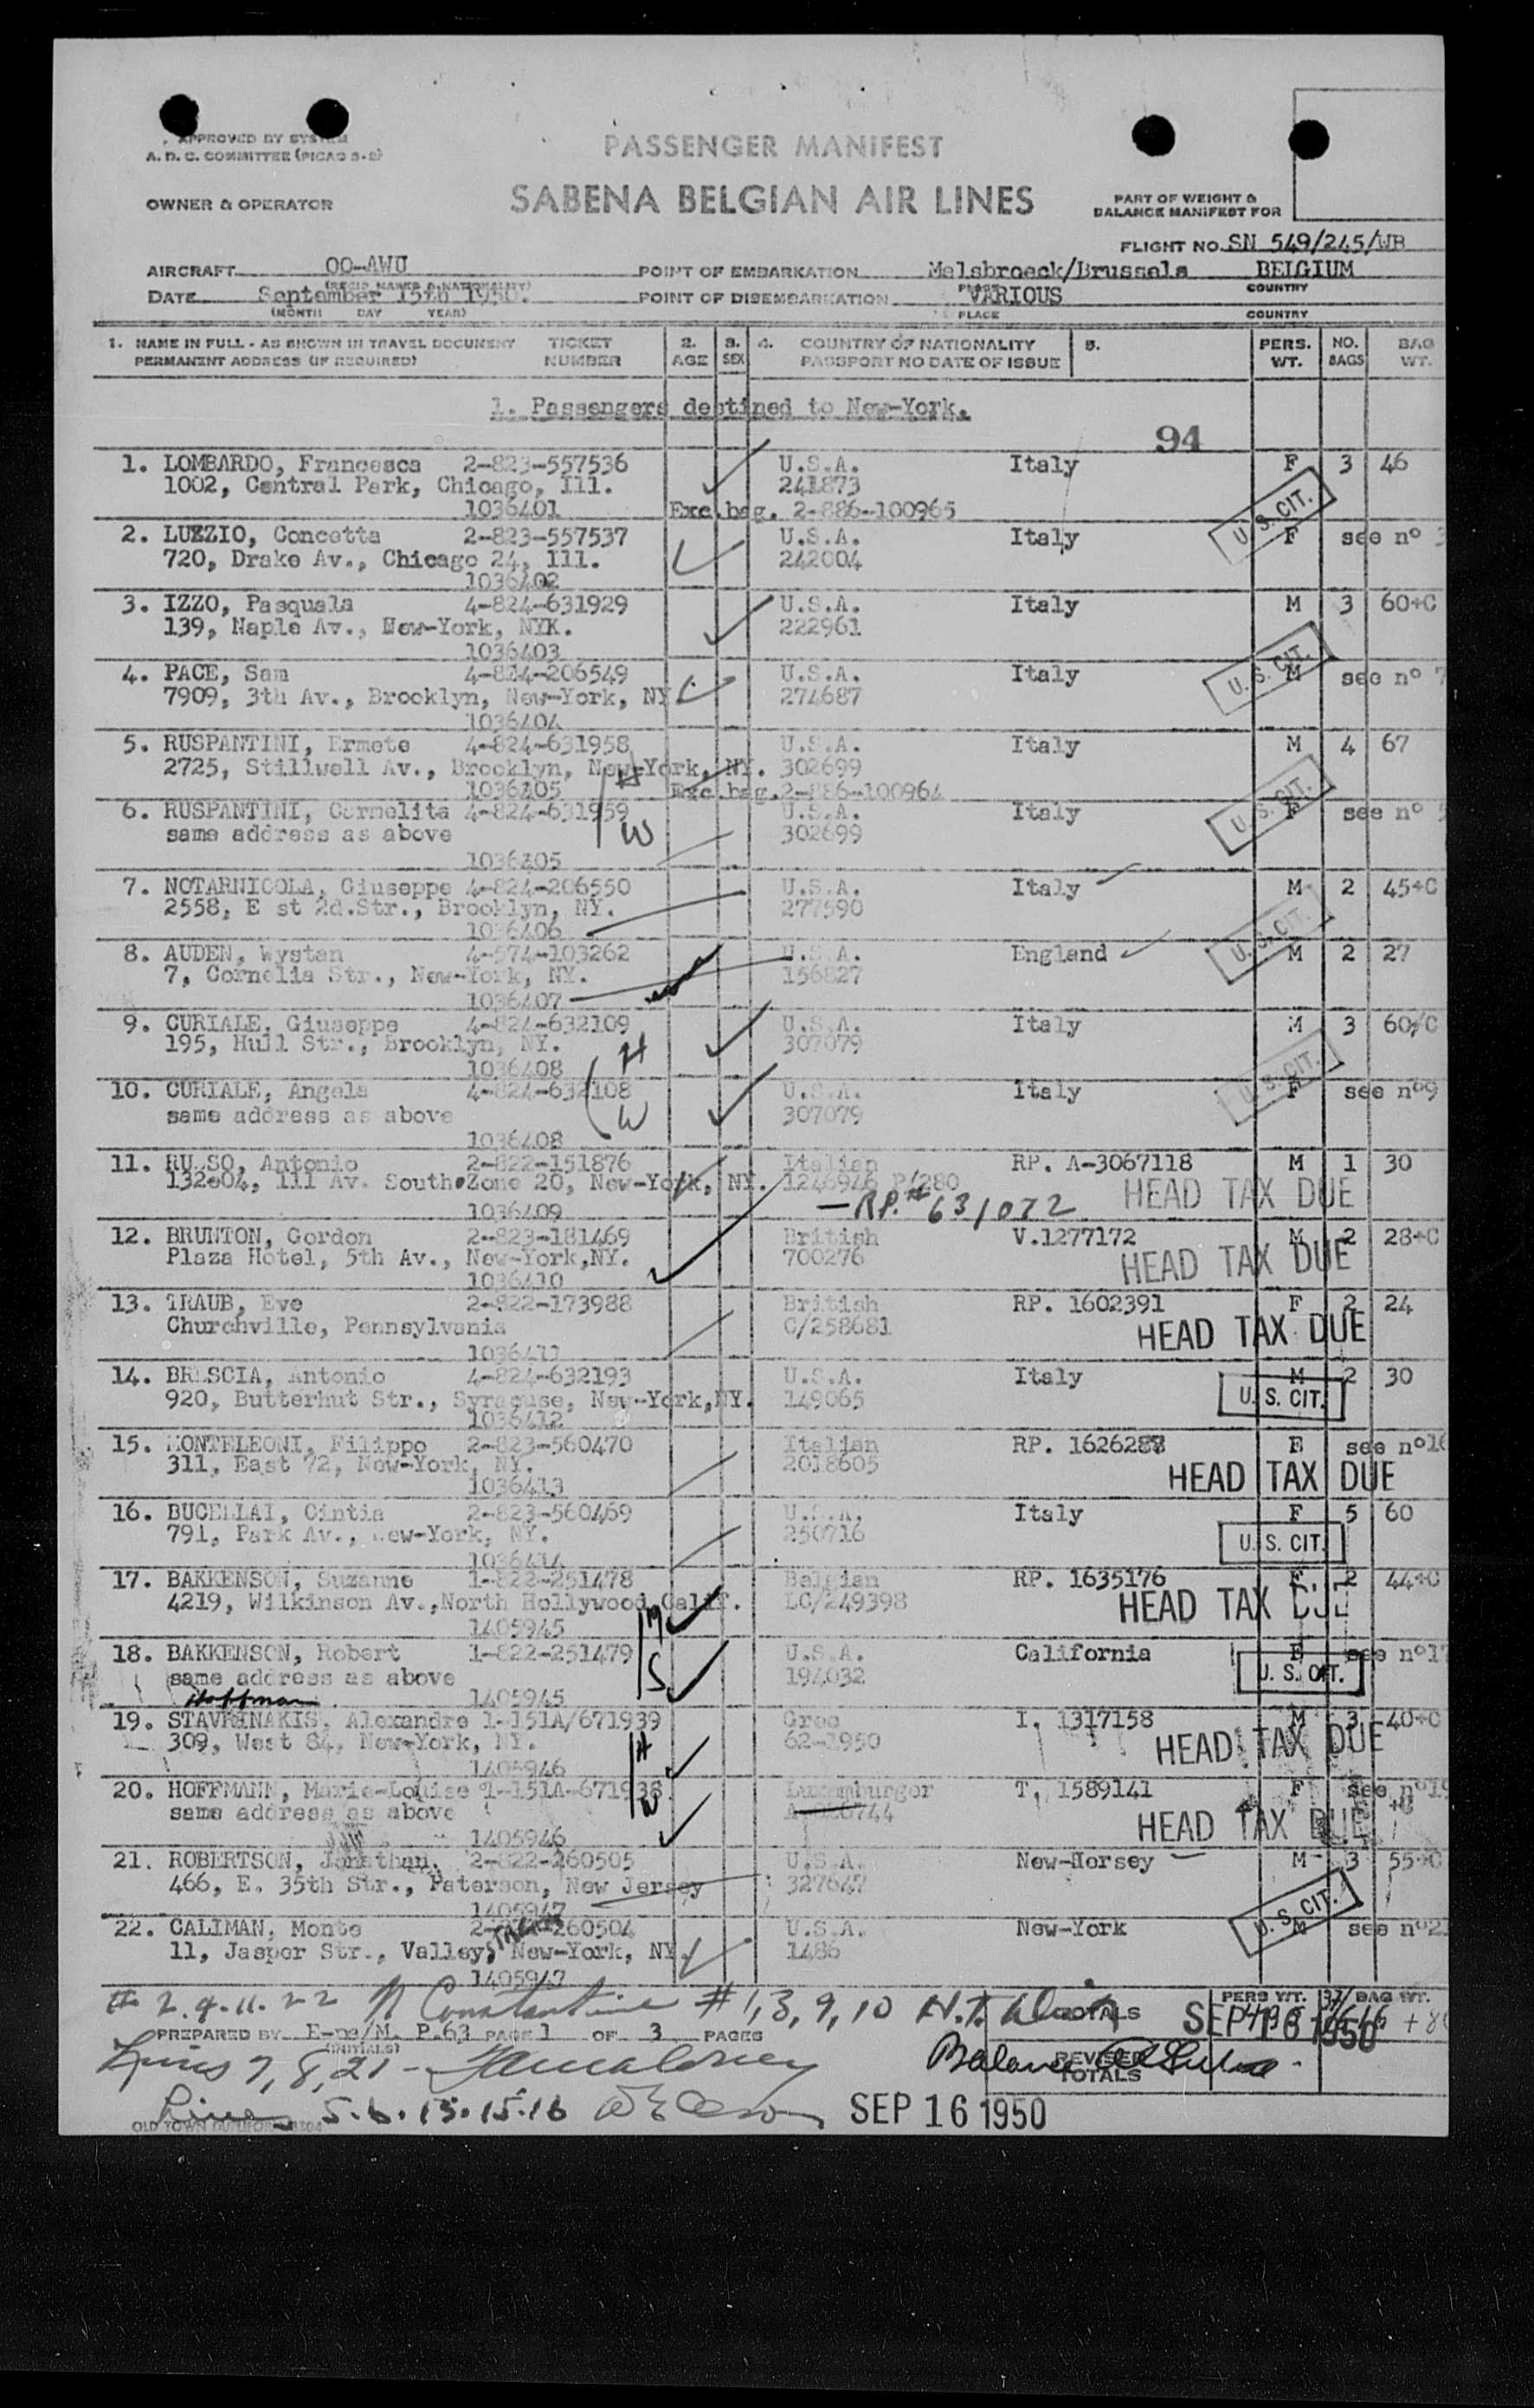 APPROVED BY SYSTEM
A. D. C. COMMITTEE (PICAO S-2)
PASSENGER MANIFEST
OWNER & OPERATOR
SABENA BELGIAN AIR LINES
PART OF WEIGHT &
BALANCE MANIFEST FOR
FLIGHT NO. SN 549/245/WB
AIRCRAFT OO-AWU POINT OF EMBARKATION Melsbroeck/Brussels BELGIUM
PLACE COUNTRY
DATE September 15th 1950. POINT OF DISEMBARKATION VARIOUS
(MONTH DAY YEAR) PLACE COUNTRY
1. NAME IN FULL - AS SHOWN IN TRAVEL DOCUMENT TICKET 2. 3. 4. COUNTRY OF NATIONALITY 5. PERS. NO. BAG
PERMANENT ADDRESS (IF REQUIRED) NUMBER AGE SEX PASSPORT NO DATE OF ISSUE WT. BAGS WT.
1. Passengers destined to New-York.
94
1. LOMBARDO, Francesca 2-823-557536 U.S.A. Italy F 3 46
1002, Central Park, Chicago, Ill. 241873
1036401 Exc.bag. 2-886-100965 U. S. CIT.
2. LUZZIO, Concetta 2-823-557537 U.S.A. Italy F see nº 3
720, Drake Av., Chicago 24, Ill. 242004
1036402
3. IZZO, Pasquala 4-824-631929 U.S.A. Italy M 3 60+C
139, Naple Av., New-York, NYK. 222961
1036403 U. S. CIT.
4. PACE, Sam 4-824-206549 U.S.A. Italy M see nº 7
7909, 3th Av., Brooklyn, New-York, NY 274687
1036404
5. RUSPANTINI, Ermete 4-824-631958 U.S.A. Italy M 4 67
2725, Stillwell Av., Brooklyn, New-York, NY. 302699
1036405 H Exc.bag.2-886-100964 U. S. CIT.
6. RUSPANTINI, Carmelita 4-824-631959 U.S.A. Italy F see nº 5
same address as above W 302699
1036405
7. NOTARNICOLA, Giuseppe 4-824-206550 U.S.A. Italy M 2 45+C
2558, E st 2d.Str., Brooklyn, NY. 277590
1036406 U. S. CIT.
8. AUDEN, Wystan 4-574-103262 U.S.A. England M 2 27
7, Cornelia Str., New-York, NY. 156827
1036407
9. CURIALE, Giuseppe 4-824-632109 U.S.A. Italy M 3 60/C
195, Hull Str., Brooklyn, NY. 307079
1036408 H U. S. CIT.
10. CURIALE, Angela 4-824-632108 U.S.A. Italy F see nº9
same address as above W 307079
1036408
11. RUSSO, Antonio 2-822-151876 Italian RP. A-3067118 M 1 30
132-04, 111 Av. South Zone 20, New-York, NY. 1246946 P/280 HEAD TAX DUE
1036409 - RP. # 631072
12. BRUNTON, Gordon 2-823-181469 British V.1277172 M 2 28+C
Plaza Hotel, 5th Av., New-York,NY. 700276 HEAD TAX DUE
1036410
13. TRAUB, Eve 2-822-173988 British RP. 1602391 F 2 24
Churchville, Pennsylvania C/258681 HEAD TAX DUE
1036411
14. BRESCIA, Antonio 4-824-632193 U.S.A. Italy M 2 30
920, Butterhut Str., Syracuse, New-York,NY. 149065 U. S. CIT.
1036412
15. MONTELEONI, Filippo 2-823-560470 Italian RP. 1626287 E see nº16
311, East 72, New-York, NY. 2018605 HEAD TAX DUE
1036413
16. BUCELLAI, Cintia 2-823-560469 U.S.A. Italy F 5 60
791, Park Av., New-York, NY. 250716 U. S. CIT.
1036414
17. BAKKENSON, Suzanne 1-822-251478 Belgian RP. 1635176 F 2 44+C
4219, Wilkinson Av.,North Hollywood,Calif. LC/249398 HEAD TAX DUE
1405945 M
18. BAKKENSON, Robert 1-822-251479 U.S.A. California E see nº17
same address as above S 194032 U. S. CIT.
Hoffman 1405945
19. STAVRINAKIS, Alexandre 1-151A/671939 Grec I. 1317158 M 3 40+C
309, West 84, New-York, NY. 62-1950 HEAD TAX DUE
1405946 H
20. HOFFMANN, Marie-Louise 1-151A-671938 Luxemburger T. 1589141 F see nº19
same address as above W HEAD TAX DUE
1405946
21. ROBERTSON, Jonathan, 2-822-260505 U.S.A. New-Horsey M 3 55+C
466, E. 35th Str., Paterson, New Jersey 327647
1405947 U. S. CIT.
22. CALIMAN, Monte 2-822-260504 U.S.A. New-York M see nº21
11, Jasper Str., Valley, New-York, NY 1486
1405947
# 2.4.11.22 N Constantine # 1,3,9,10 H.T. TOTALS PERS WT. BAG WT.
SEP 16 1950
PREPARED BY E-ps/M. P.63 PAGE 1 OF 3 PAGES
(INITIALS)
Lines 7, 8, 21 - Balance REVISED TOTALS
Lines 5.6.13.15.16 SEP 16 1950
OLD TOWN